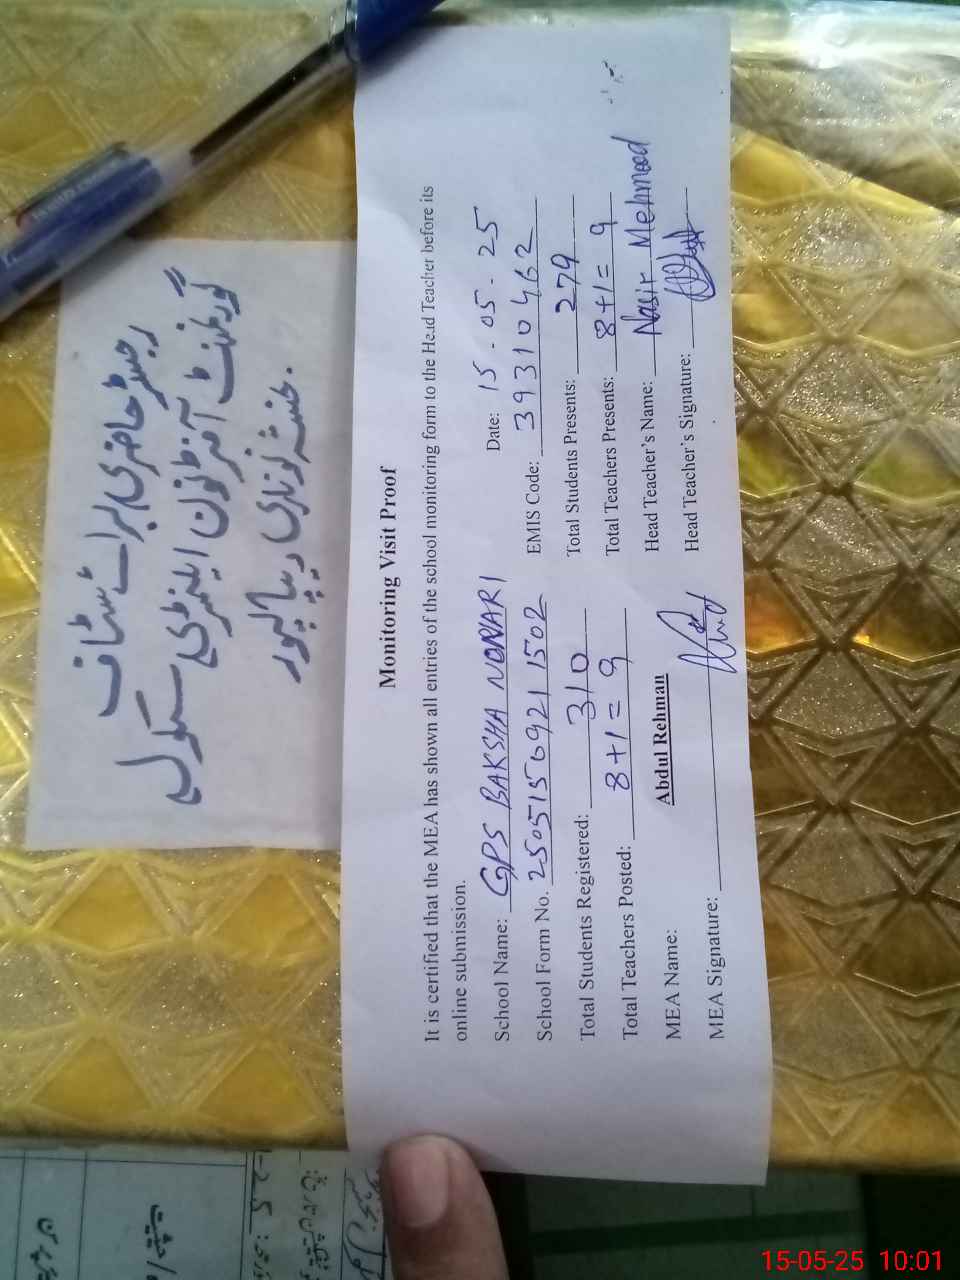 رجسٹر حاضری برائے سٹاف
گورنمنٹ آفٹرنون ایلیمنٹری سکول
بخشہ نوناری دیپالپور
Monitoring Visit Proof
It is certified that the MEA has shown all entries of the school monitoring form to the Head Teacher before its
online submission.
School Name: GPS BAKSHA NONARI Date: 15-05-25
School Form No. 250515092 1502 EMIS Code: 39310462
Total Students Registered: 310 Total Students Presents: 279
Total Teachers Posted: 8+1=9 Total Teachers Presents: 8+1=9
MEA Name: Abdul Rehman Head Teacher's Name: Nasir Mehmood
MEA Signature: Head Teacher's Signature:
15-05-25 10:01